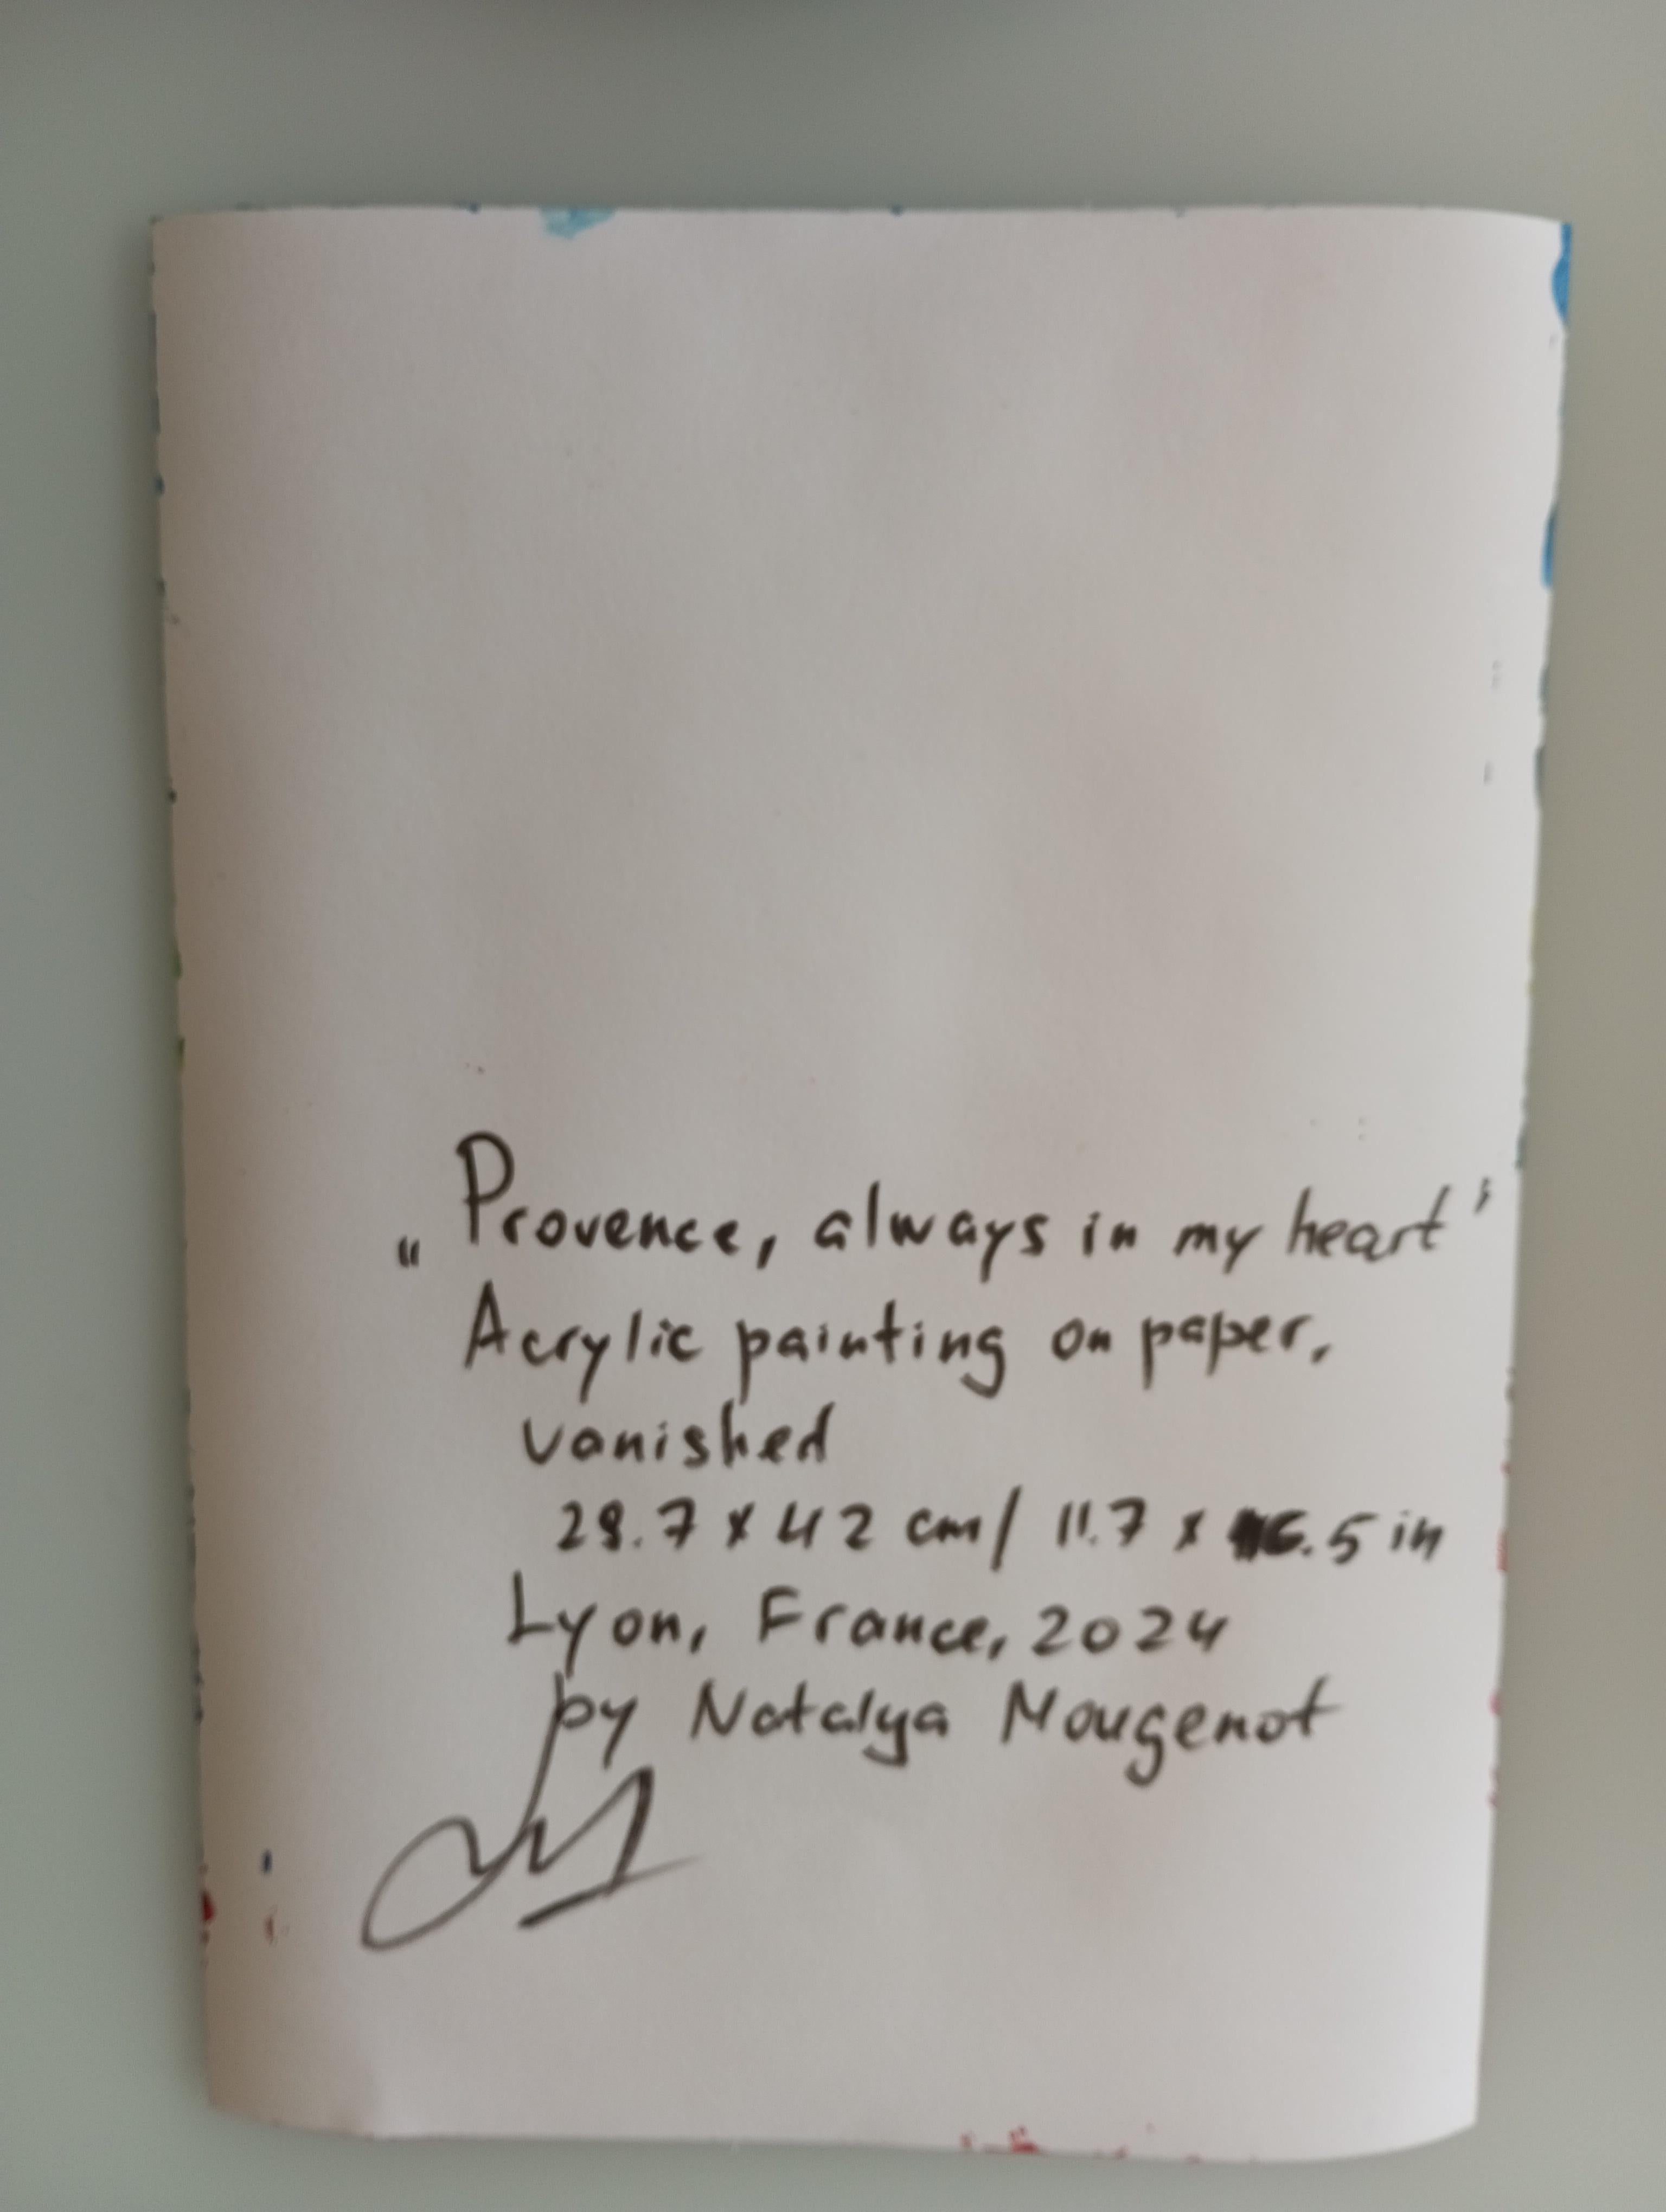 „Provence, always in my heart"
Acrylic painting on paper,
vanished
29.7 x 42 cm/ 11.7 x 16.5 in
Lyon, France, 2024
by Natalya Mougenot